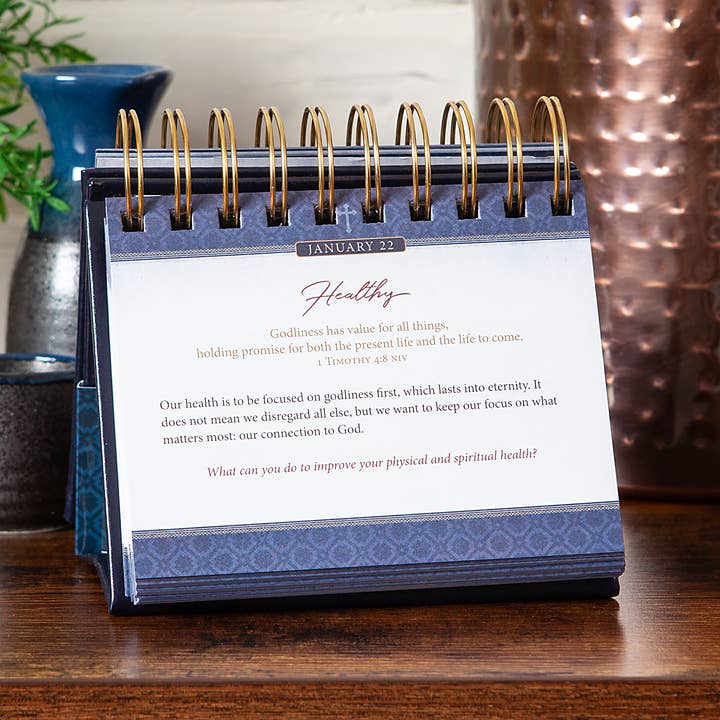 JANUARY 22
Healthy
Godliness has value for all things,
holding promise for both the present life and the life to come.
1 TIMOTHY 4:8 NIV
Our health is to be focused on godliness first, which lasts into eternity. It
does not mean we disregard all else, but we want to keep our focus on what
matters most: our connection to God.
What can you do to improve your physical and spiritual health?